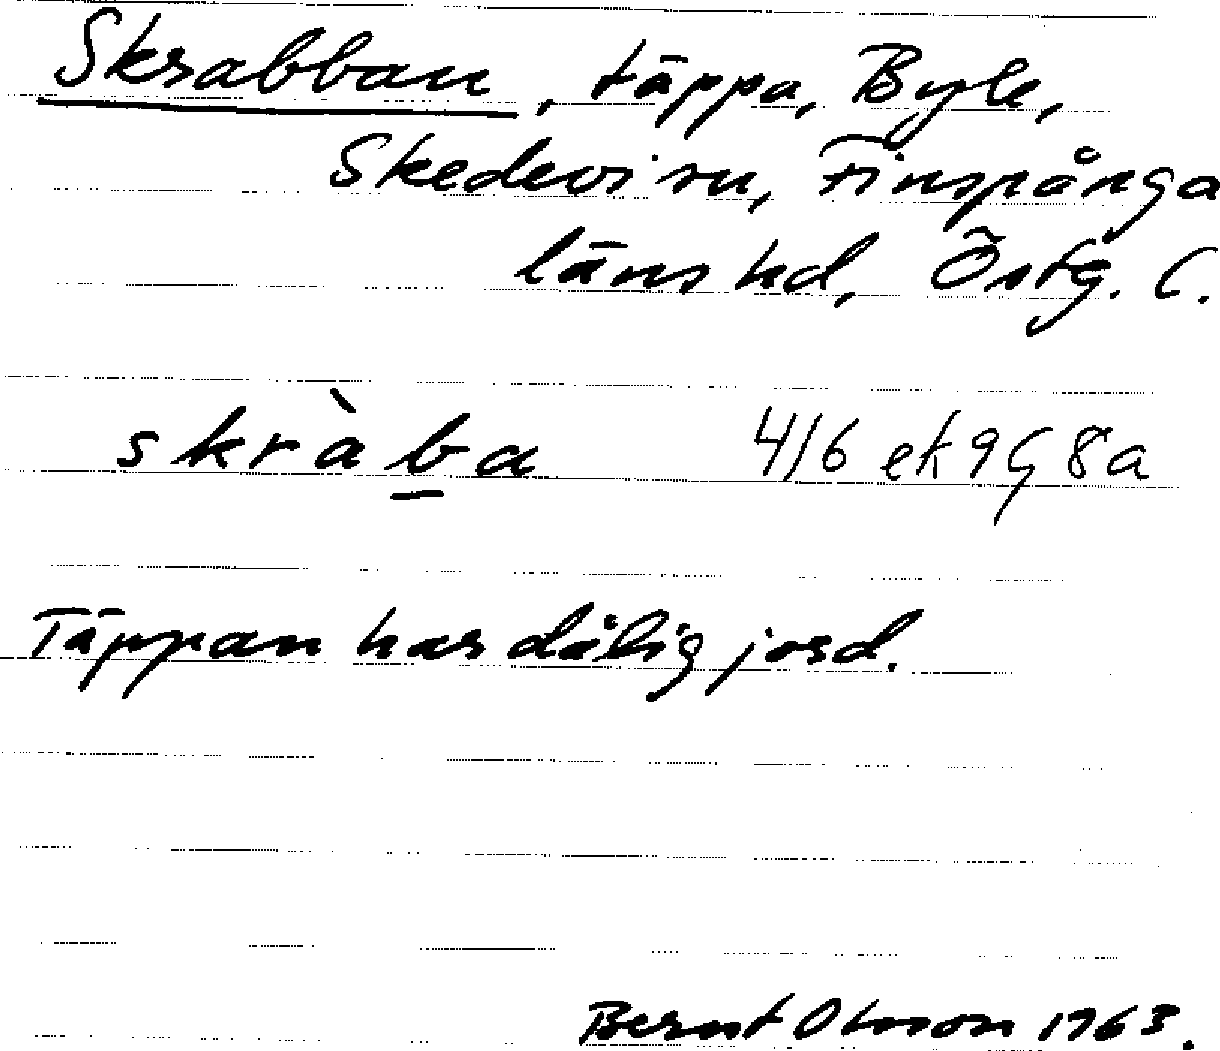 Skrabban, täppa, Byle,
Skedevi sn, Finspånga
läns hd, Östg. l.
skràba 4/6 ek 9G8a
Täppan har dålig jord.
Bernt Olsson 1963.